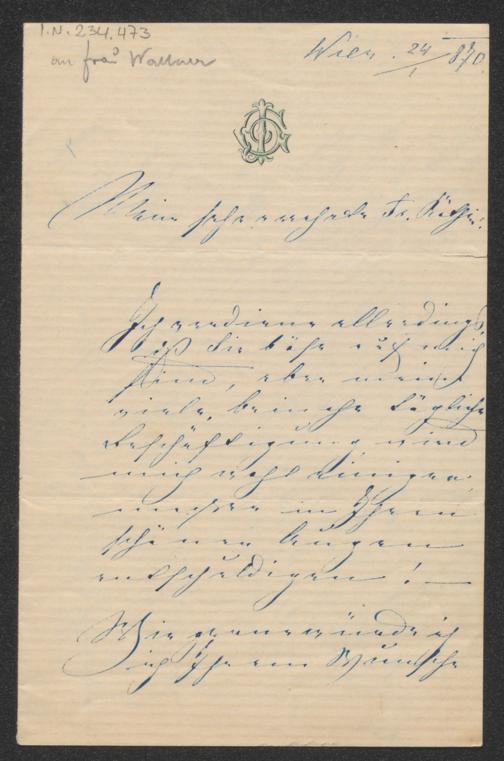 I.N. 234.473
an frau Wallner
Wien. 24/1 870.
Meine sehr verehrte Fr. Käthi!
Ich verdiene allerdings,
daß Sie böse auf mich
sind, aber meine
viele, beinahe tägliche
Beschäftigung wird
mich wohl einiger
maßen in Ihren
schönen Augen
entschuldigen! —
Wie gerne würde ich
Ihrem Wunsche